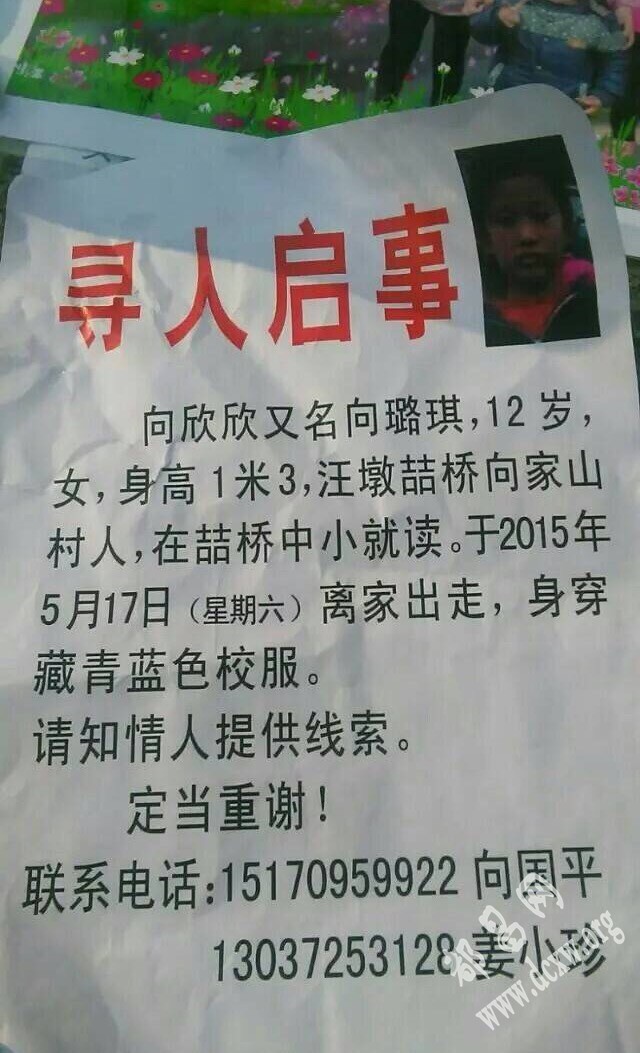 寻人启事
向欣欣又名向璐琪,12岁,
女,身高1米3,汪墩喆桥向家山
村人,在喆桥中小就读。于2015年
5月17日(星期六)离家出走,身穿
藏青蓝色校服。
请知情人提供线索。
定当重谢!
联系电话:15170959922 向国平
13037253128 姜小珍
都昌网
www.dcxw.org